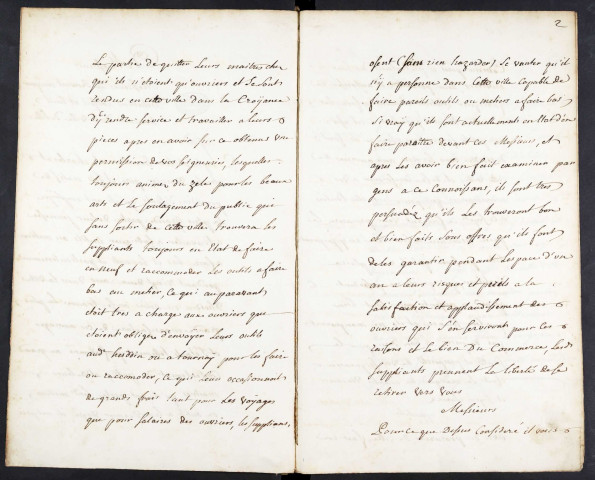 Le partie de quitter Leurs maitres chez
qui ils n'etoient qu'ouvriers et se sont
rendus en cette ville dans la Croyance
d'y rendre service et travailler a leurs
pieces apres en avoir sur ce obtenus une
permission de vos seigneuries, lesquelles
toujours animez du zele pour les beaux
arts et le soulagement du public qui
sans sortir de cette ville trouvera les
suppliants toujours en Etat de faire
en neuf et raccommoder Les outils a faire
bas au metier, Ce qui auparavant
étoit tres a charge aux ouvriers que
etoient obligez d'envoyer Leurs outils
aud. hesdin ou a tournay pour les faire
ou raccomoder, Ce qui Leur occasionnoit
de grands frais tant pour Les voyages
que pour salaires des ouvriers, les suppliants
2
osent (sans rien hazarder) se vanter qu'il
n'y a personne dans Cette ville capable de
faire pareils outils ou metiers a faire bas
si vray qu'ils sont actuellement en Etat d'en
faire paraitre devant ces Messieurs, et
apres Les avoir bien fait examiner par
gens a ce Connoissans, ils sont tres
persuadez qu'ils Les trouveront bons
et bien faits sous offres qu'ils font
de les garantir pendant L'espace d'un
an a leurs risques et perils a la
satisfaction et applaudissement des
ouvriers qui s'en serviront pour Ces
raisons et Le bien Du Commerce, Les
suppliants prennent La liberté de se
retirer vers vous
Messieurs
Pour ce que Dessus Consideré il vous